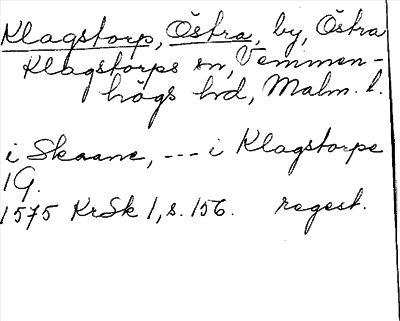 Klagstorp, Östra, by, Östra
Klagstorps sn, Vemmen-
högs hd, Malm. l.
i Skaane, --- i Klagstorpe
19.
1575 KrSk 1, s. 156. regest.